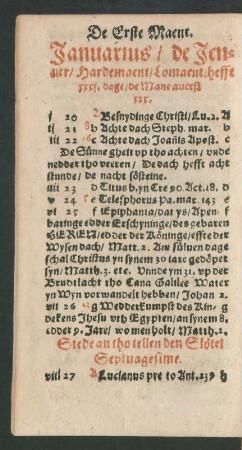 De Erste Maent.
Januarius / de Jen-
ner / Hardemaent / Lomaent / hefft
xxxj. dage / de Mane auerst
xxx.
j 20 A Besnydinge Christi / Lu. 2. A
ij 21 b Achte dach Steph. mar. b
iij 22 c Achte dach Joañis Apost. c
De Sünne gheit vp tho achten / vnde
nedder tho veeren / De dach hefft acht
stunde / de nacht sösteine.
iiij 23 d Titus b. yn Cre 90. Act. 18. d
v 24 e Telesphorus Pa. mar. 143 e
vj 25 f Epiphania / dat ys / Apen- f
baringe edder Erschyninge / des gebaren
HEREN / edder der Köninge / effte der
Wysen dach / Matt. 2. Am sülüen dage
schal Christus yn synem 30 iare gedöpet
syn / Matth. 3. etc. Vnnde ym 31. vp der
Brudtlacht tho Cana Galilee Water
yn Wyn vorwandelt hebben / Johan 2.
vij 26 g Wedderkumpst des Kin- g
dekens Jhesu vth Egypten / an synem 8.
edder 9. Jare / wo men holt / Matth. 2.
Stede an tho tellen den Slötel
Septuagesime.
viij 27 A Lucianus pre to Ant. 239 h